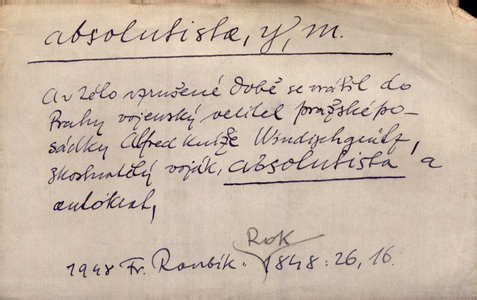 absolutista, y, m.
A v zélo vzrušené době se vrátil do
Prahy vojenský velitel pražské po-
sádky Alfred kníže Windischgrätz,
zkostnatělý voják, absolutista a
autokrat,
Rok
1948 Fr. Roubík. 1848: 26, 16.